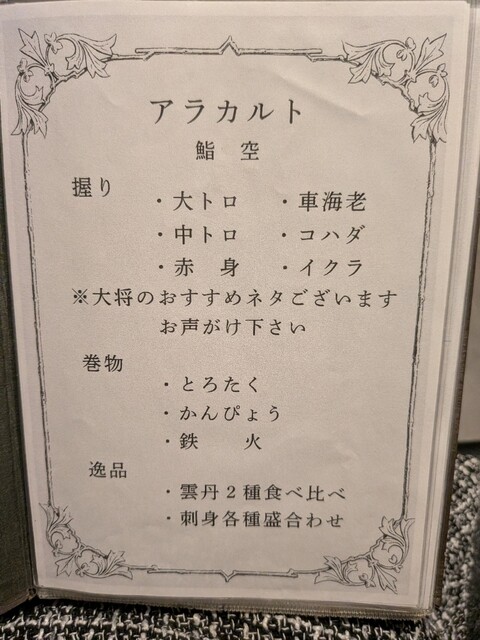 アラカルト
鮨 空
握り
・大トロ ・車海老
・中トロ ・コハダ
・赤 身 ・イクラ
※大将のおすすめネタございます
お声がけ下さい
巻物
・とろたく
・かんぴょう
・鉄 火
逸品
・雲丹２種食べ比べ
・刺身各種盛合わせ